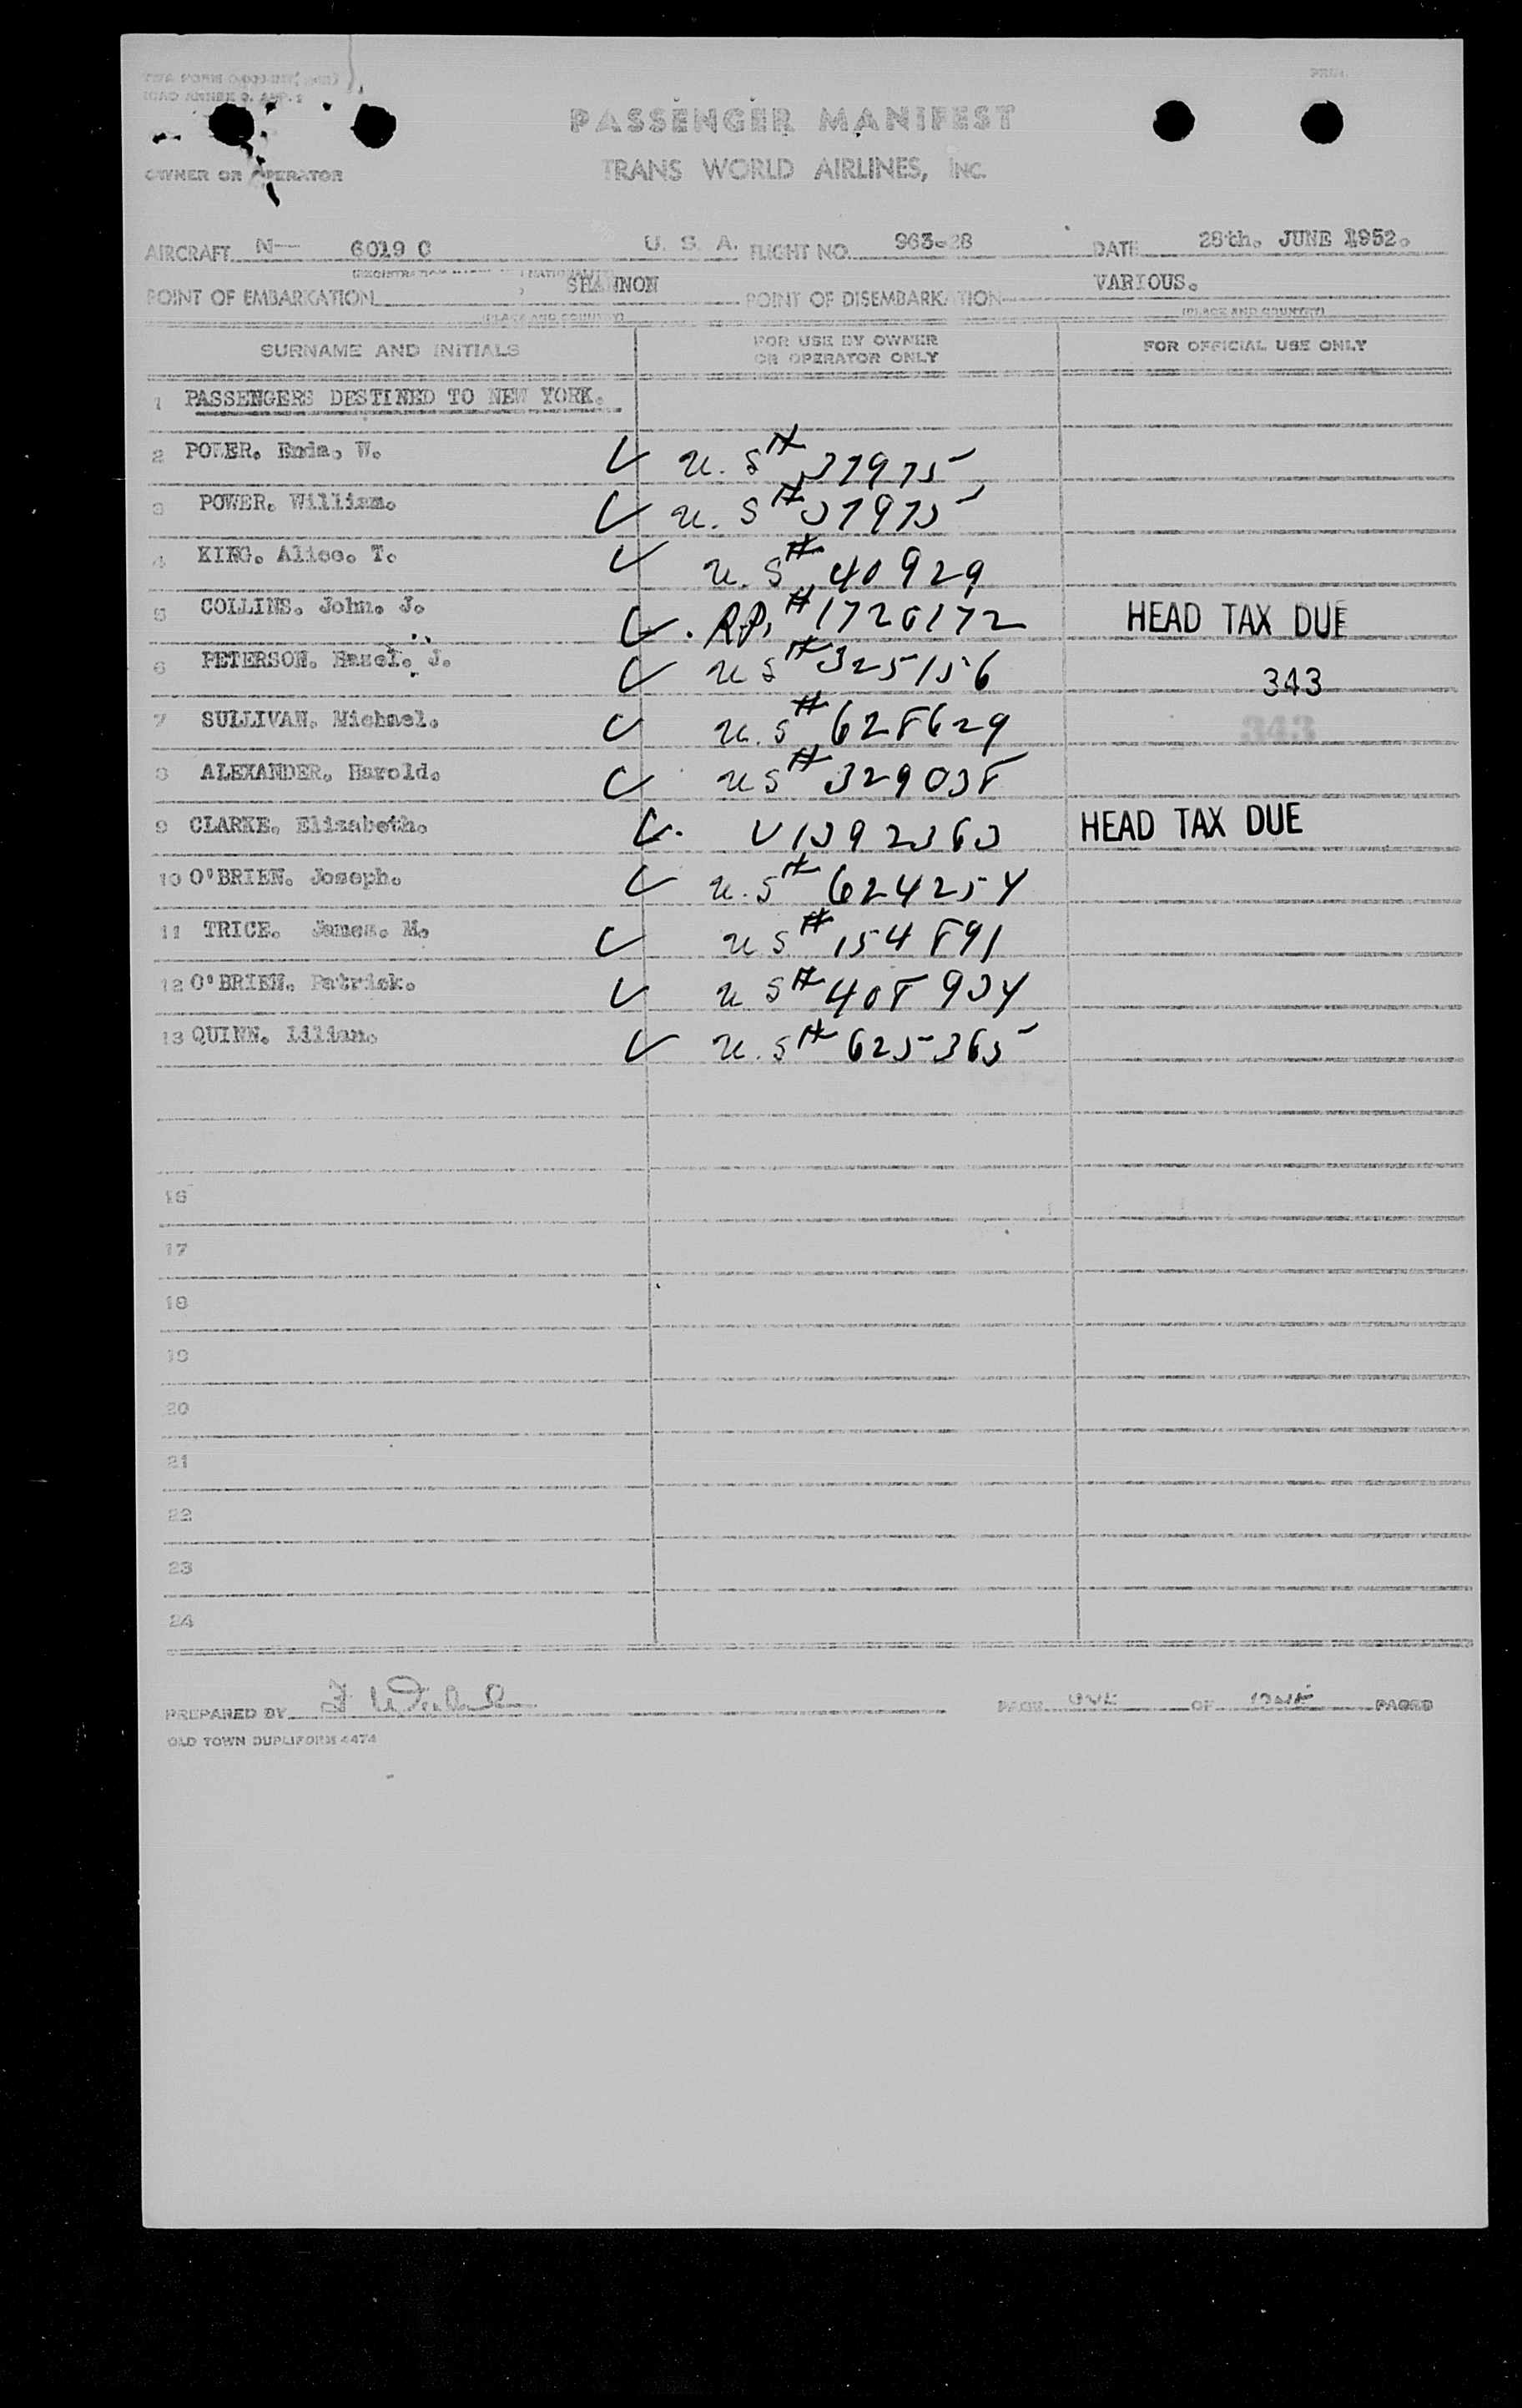 ICAO ANNEX 9. APP. 2
PASSENGER MANIFEST
TRANS WORLD AIRLINES, INC.
OWNER OR OPERATOR
AIRCRAFT N— 6019 C U. S. A. FLIGHT NO. 963-28 DATE 28th. JUNE 1952.
POINT OF EMBARKATION SHANNON POINT OF DISEMBARKATION VARIOUS.
(PLACE AND COUNTRY) (PLACE AND COUNTRY)
SURNAME AND INITIALS FOR USE BY OWNER OR OPERATOR ONLY FOR OFFICIAL USE ONLY
1 PASSENGERS DESTINED TO NEW YORK.
2 POWER. Enda. W. U.S # 37975
3 POWER. William. U.S # 37975
4 KING. Alice. T. U.S # 40929
5 COLLINS. John. J. R.P. # 1726172 HEAD TAX DUE
6 PETERSON. Hazel. J. US # 325156 343
7 SULLIVAN. Michael. U.S # 628629 343
8 ALEXANDER. Harold. US # 329038
9 CLARKE. Elizabeth. V1392363 HEAD TAX DUE
10 O'BRIEN. Joseph. U.S # 624254
11 TRICE. James. M. US # 154891
12 O'BRIEN. Patrick. US # 408934
13 QUINN. Lilian. U.S # 625365
16
17
18
19
20
21
22
23
24
PREPARED BY PAGE ONE OF ONE PAGES
OLD TOWN DUPLIFORM 4474